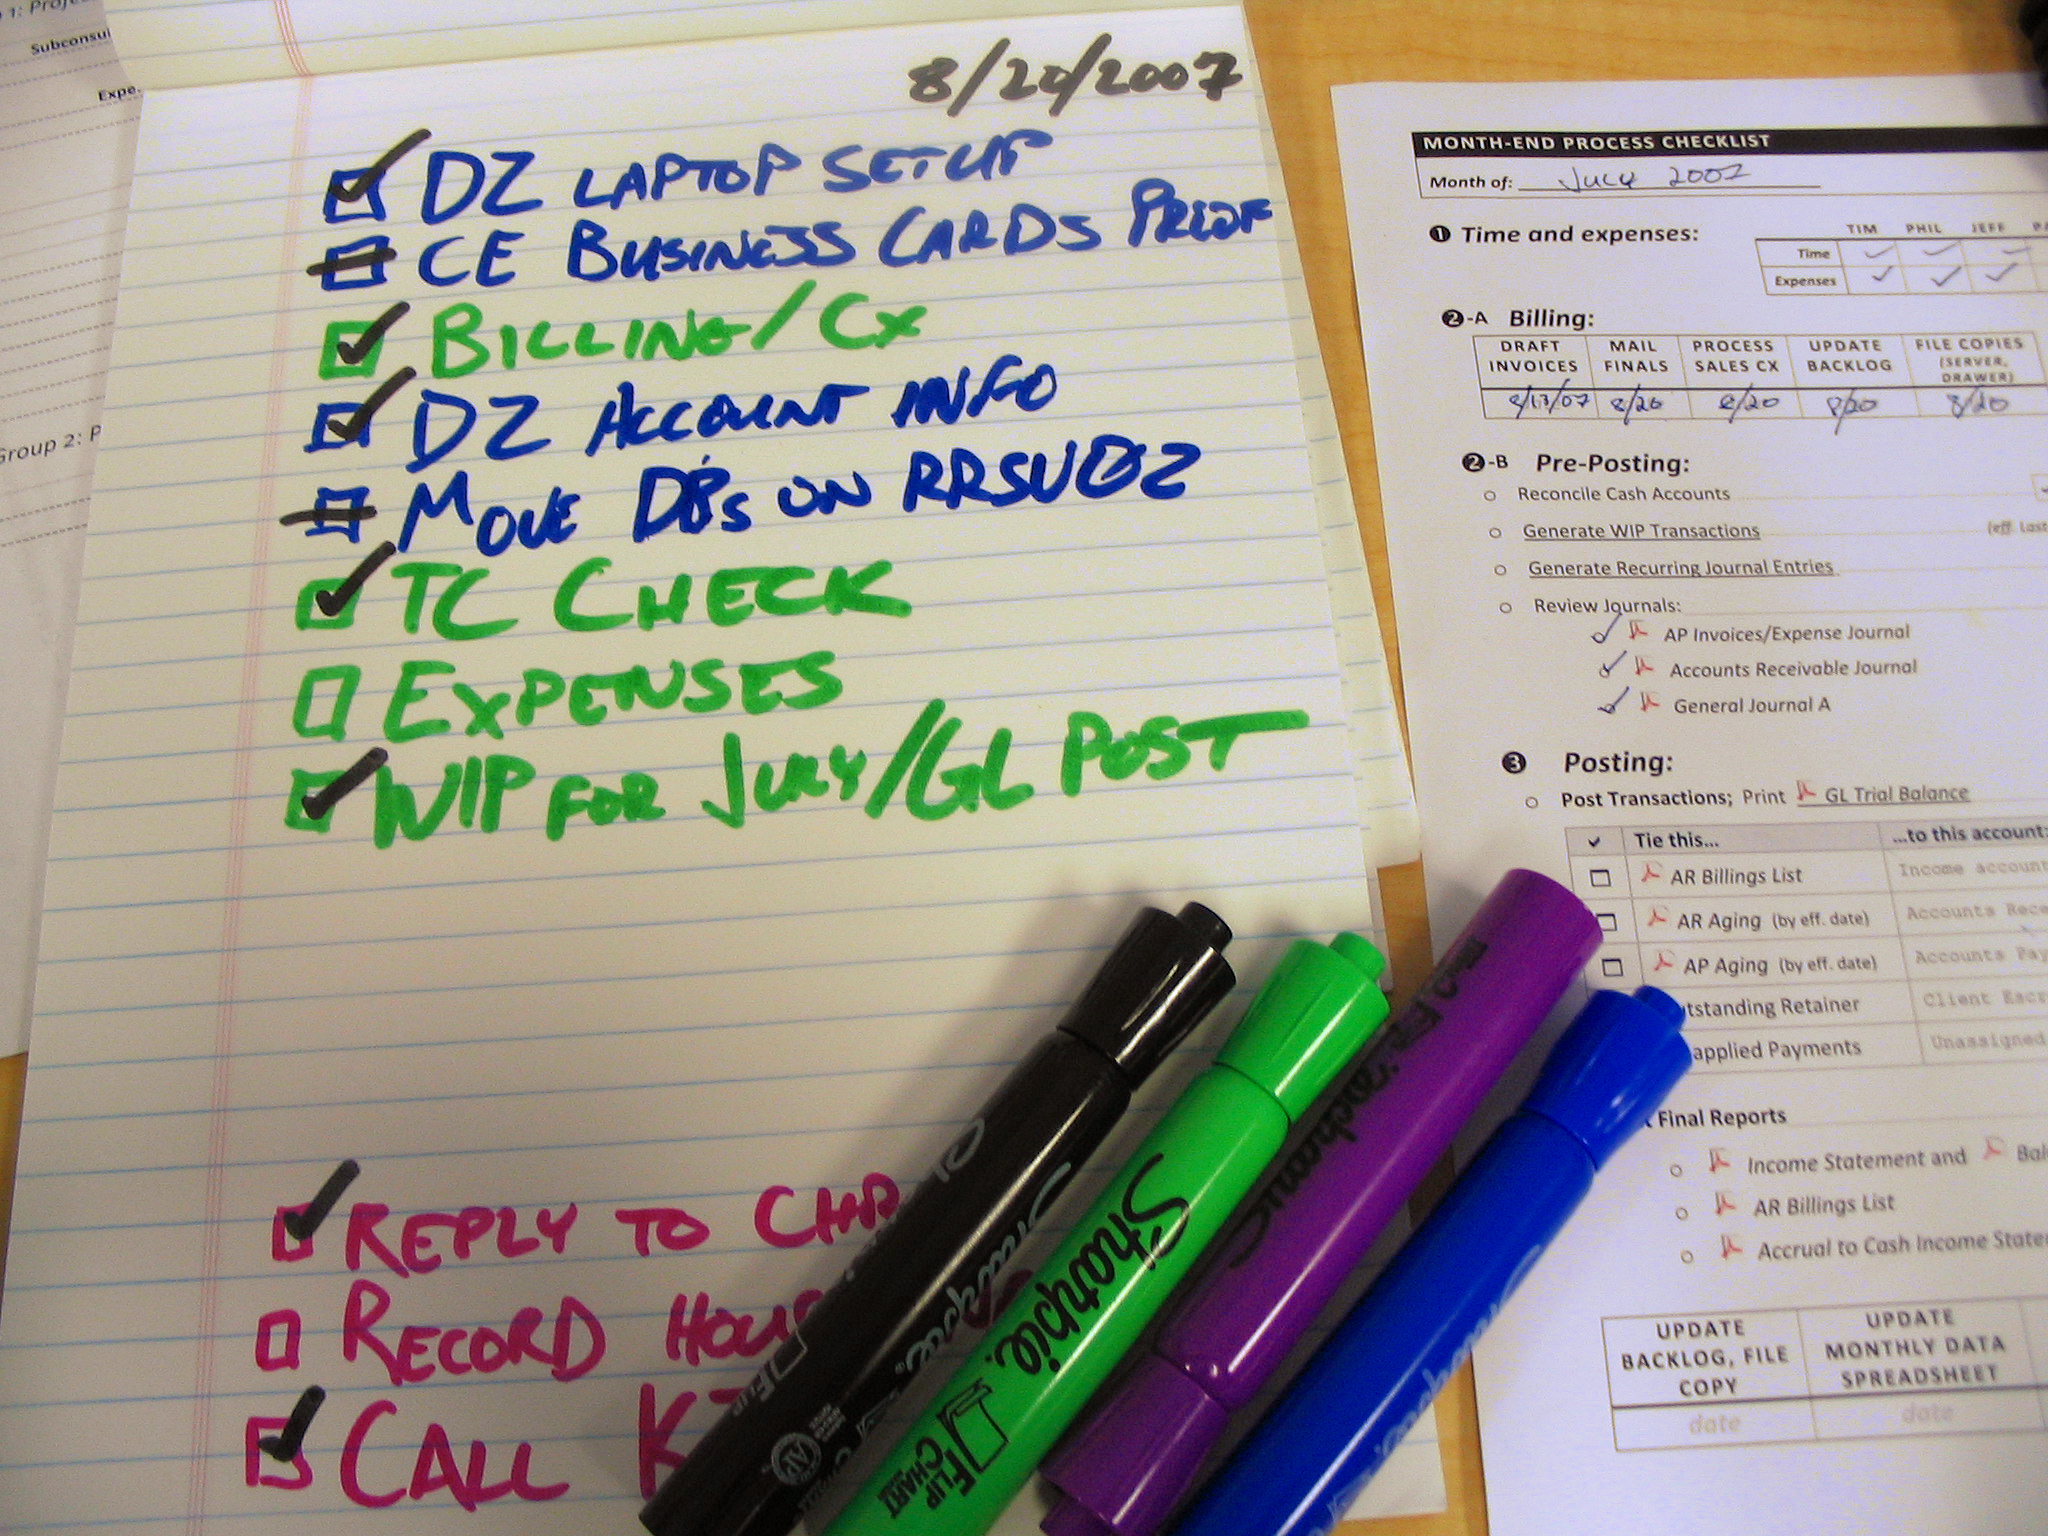 1: Projec
Subconsul
Expe
Group 2: P
8/20/2007
DZ LAPTOP SETUP
CE BUSINESS CARDS PROOF
BILLING/CX
DZ ACCOUNT INFO
MOVE DBs ON RRSV02
TC CHECK
EXPENSES
WIP FOR JULY/GL POST
REPLY TO CHR
RECORD HOU
CALL K
Sharpie.
FLIP CHART
Sharpie.
FLIP CHART
MONTH-END PROCESS CHECKLIST
Month of: July 2007
1 Time and expenses:
TIM PHIL JEFF
Time
Expenses
2-A Billing:
DRAFT INVOICES MAIL FINALS PROCESS SALES CX UPDATE BACKLOG FILE COPIES (SERVER, DRAWER)
8/13/07 8/20 8/20 8/20 8/20
2-B Pre-Posting:
Reconcile Cash Accounts
Generate WIP Transactions (eff. last
Generate Recurring Journal Entries
Review Journals:
AP Invoices/Expense Journal
Accounts Receivable Journal
General Journal A
3 Posting:
Post Transactions; Print GL Trial Balance
Tie this... ...to this account:
AR Billings List Income account
AR Aging (by eff. date) Accounts Rece
AP Aging (by eff. date) Accounts Pay
tstanding Retainer Client Escr
applied Payments Unassigned
t Final Reports
Income Statement and Bal
AR Billings List
Accrual to Cash Income State
UPDATE BACKLOG, FILE COPY UPDATE MONTHLY DATA SPREADSHEET
date date